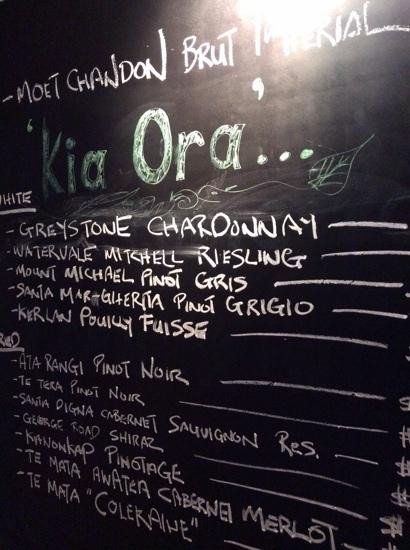 - MOET CHANDON BRUT IMPERIAL
'Kia Ora'...
WHITE
- GREYSTONE CHARDONNAY
- WATERVALE MITCHELL RIESLING
- MOUNT MICHAEL PINOT GRIS
- SANTA MARGHERITA PINOT GRIGIO
- KERLAN POUILLY FUISSE
RED
- ATA RANGI PINOT NOIR
- TE TERA PINOT NOIR
- SANTA DIGNA CABERNET SAUVIGNON RES.
- GEORGE ROAD SHIRAZ
- KANONKAP PINOTAGE
- TE MATA AWATEA CABERNET MERLOT
- TE MATA "COLERAINE"